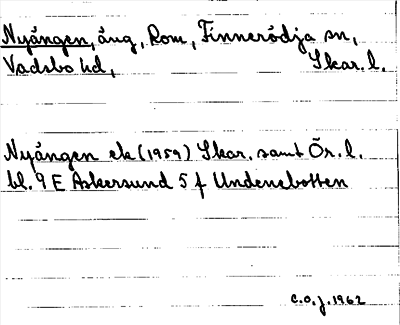 Nyången, äng, Rom, Finnerödja sn,
Vadsbo hd, Skar. l.
Nyången ek (1959) Skar. samt Ör. l.
bl. 9 E Askersund 5 f Undenebotten
C.O.J. 1962